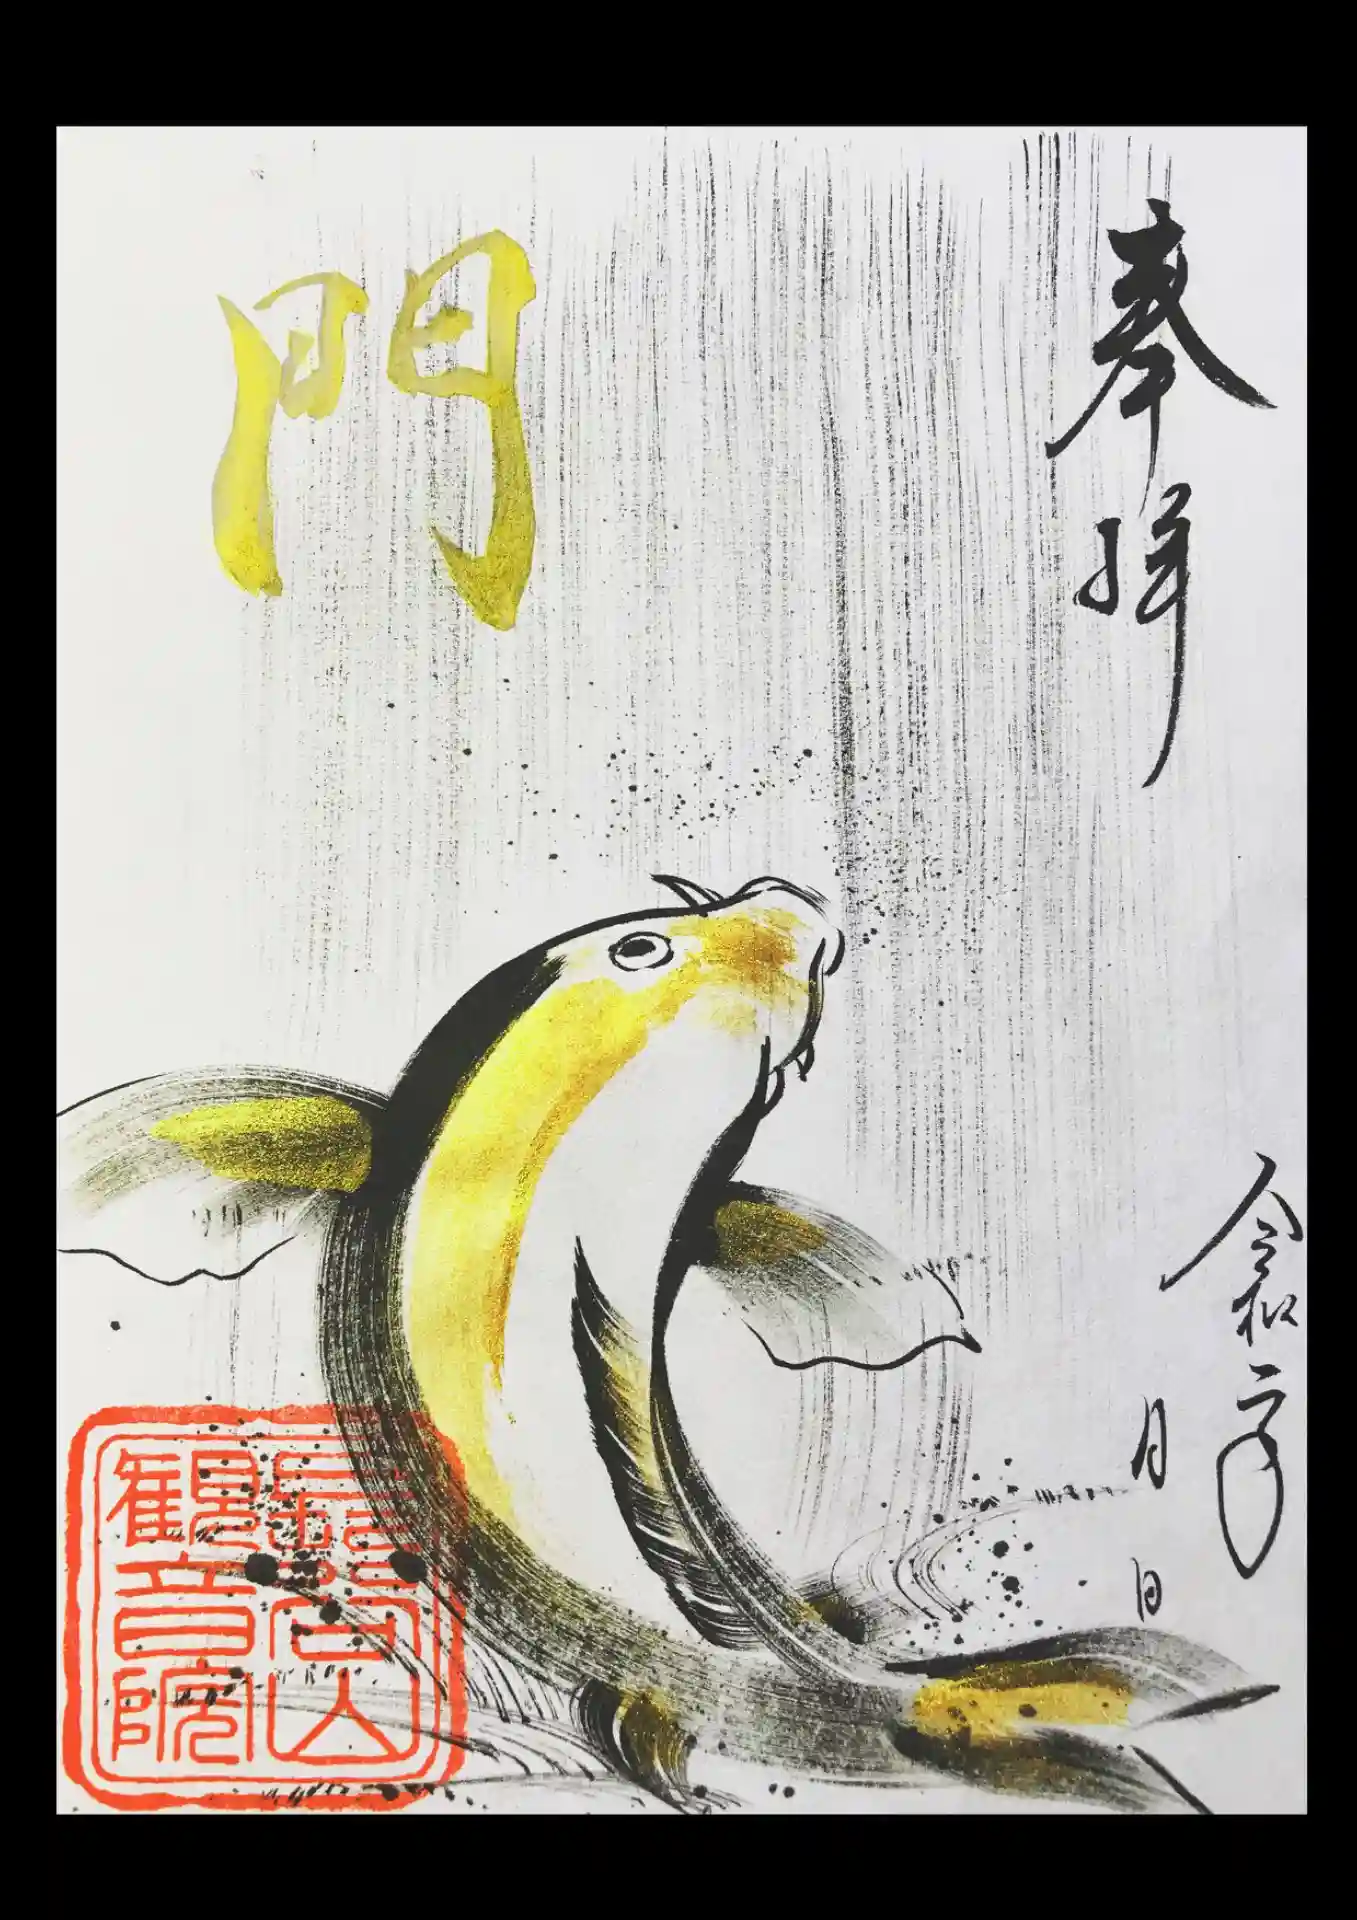 奉拝
令和二年
月 日
門
観音院